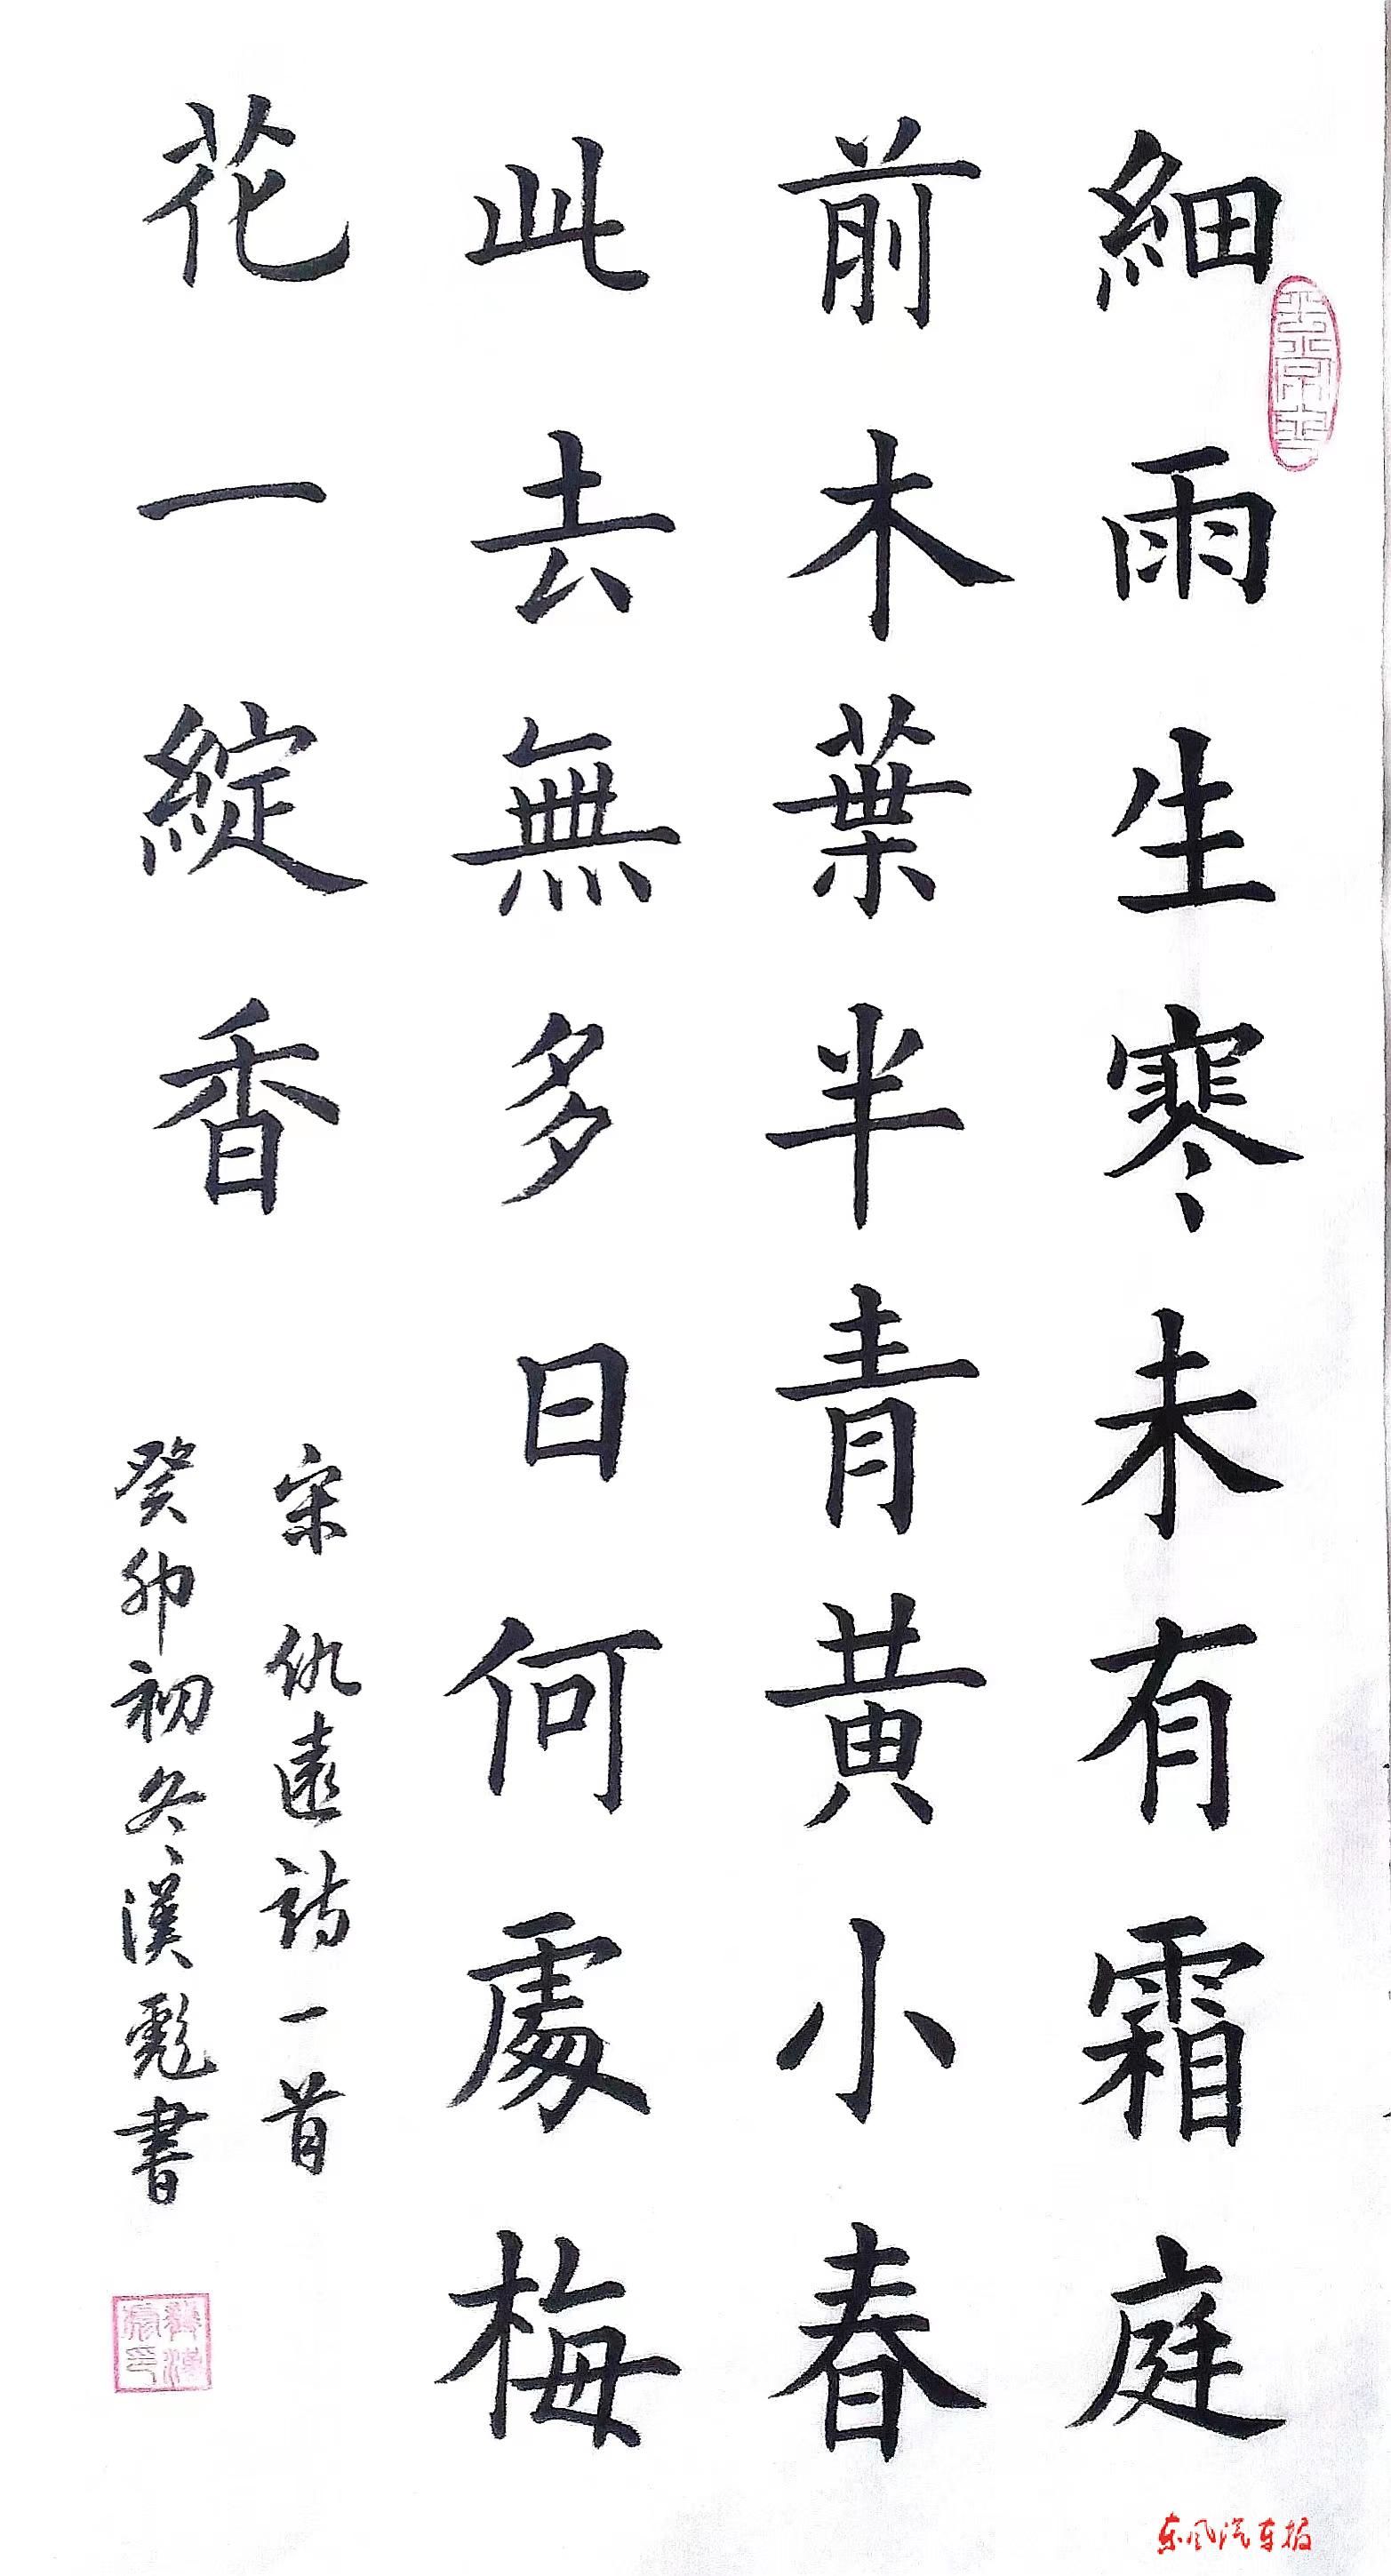 細雨生寒未有霜庭
前木葉半青黄小春
此去無多日何處梅
花一綻香
宋仇遠詩一首
癸卯初冬漢彪書
东风汽车报